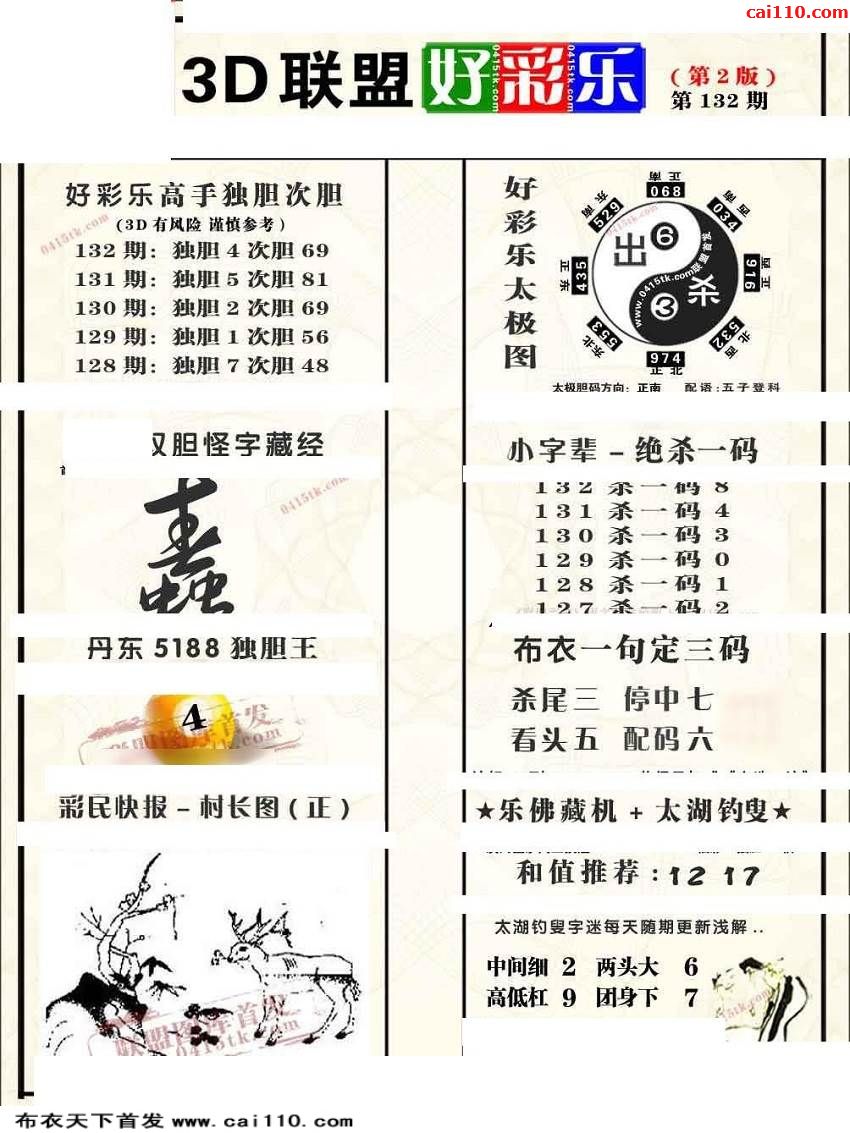 cai110.com
3D联盟 好彩乐
(第2版)
第132期
好彩乐高手独胆次胆
(3D有风险 谨慎参考)
132期：独胆4次胆69
131期：独胆5次胆81
130期：独胆2次胆69
129期：独胆1次胆56
128期：独胆7次胆48
0415tk.com
好彩乐太极图
正南 068
西南 034
正西 916
西北 532
正北 974
东北 553
正东 435
东南 529
出 6
杀 3
www.0415tk.com联盟首发
太极胆码方向：正南 配语：五子登科
双胆怪字藏经
0415tk.com
丹东5188独胆王
4
联盟图库首发
彩民快报－村长图(正)
联盟图库首发
0415tk.com
小字辈－绝杀一码
132杀一码8
131杀一码4
130杀一码3
129杀一码0
128杀一码1
127杀一码2
布衣一句定三码
杀尾三 停中七
看头五 配码六
★乐佛藏机+太湖钓叟★
和值推荐:12 17
太湖钓叟字迷每天随期更新浅解..
中间细 2 两头大 6
高低杠 9 团身下 7
0415tk.com
布衣天下首发 www.cai110.com